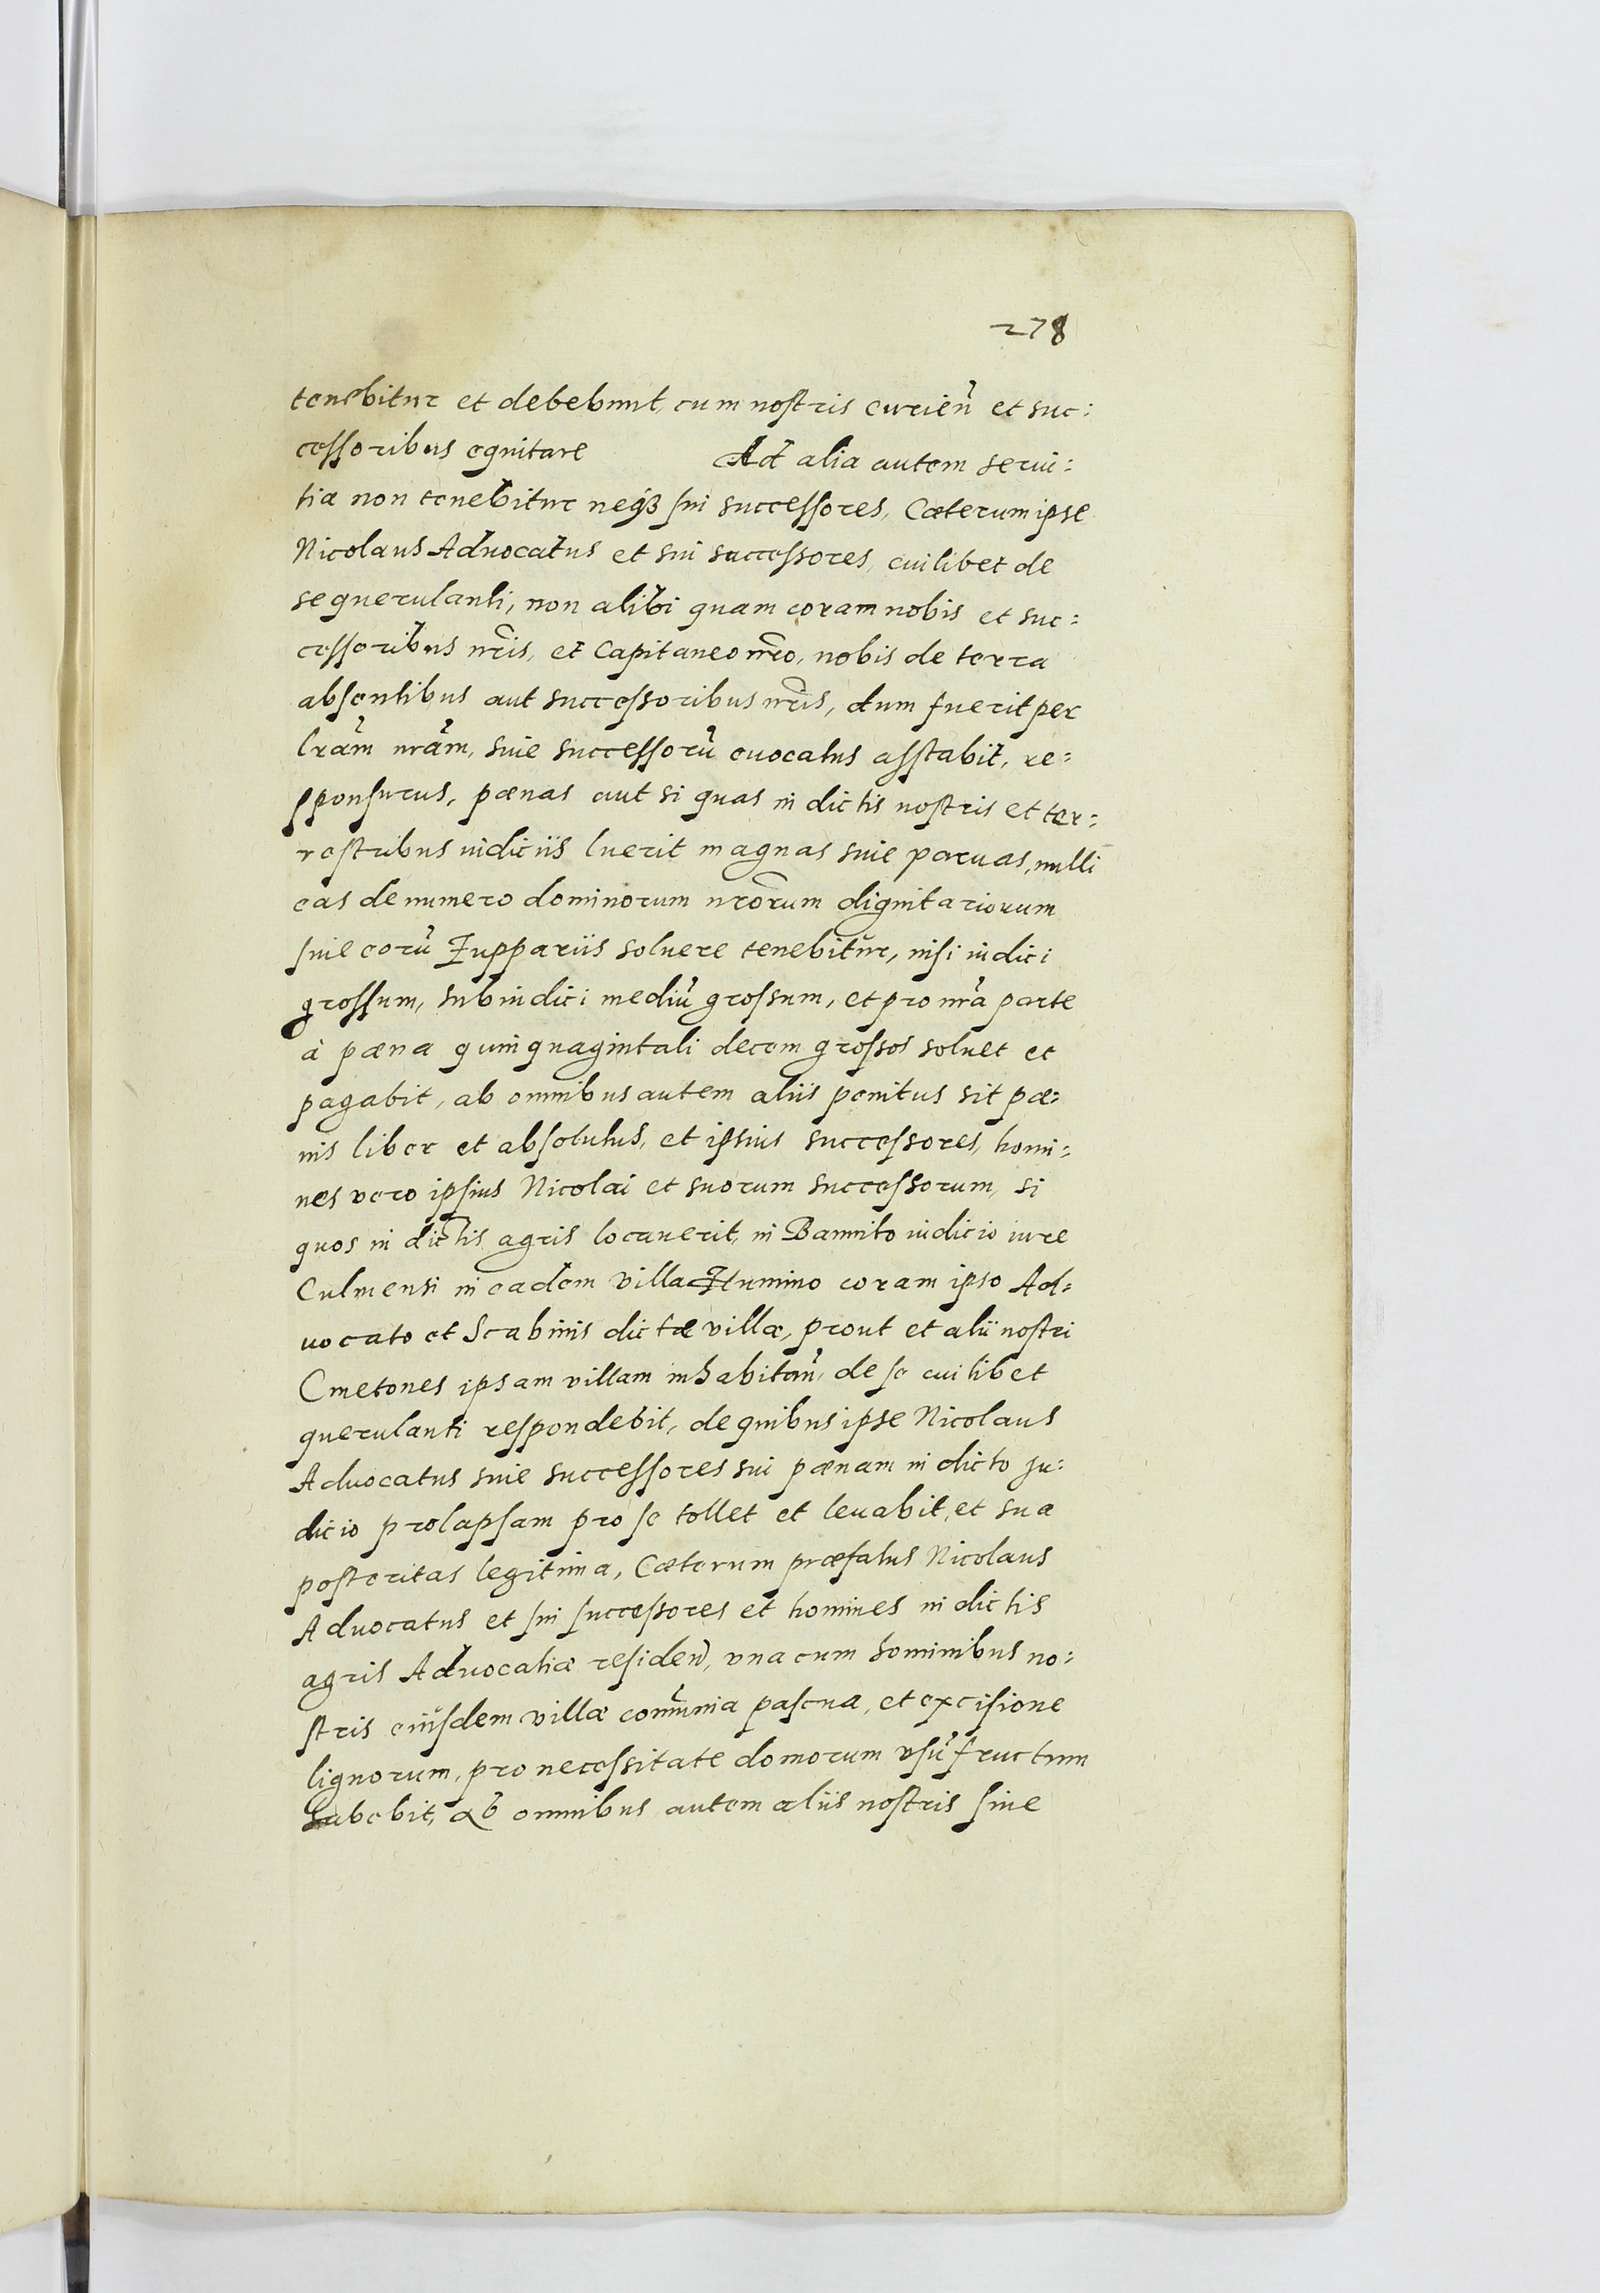 278
tenebitur et debebunt, cum nostris curień et suc:
cessoribus equitare Ad alia autem serui:
tia non tenebitur neq3 sui successores, Cæterum ipse
Nicolaus Aduocatus et sui successores, cuilibet de
se querulanti, non alibi quam coram nobis et suc:
cessoribus nr̃is, et Capitaneo nr̃o, nobis de terra
absentibus aut successoribus nr̃is, dum fuerit per
lr̃am nr̃am, siue successorũ euocatus asstabit, re:
sponsurus, pœnas aut si quas in dictis nostris et ter:
restribus iudiciis luerit magnas siue paruas, nulli
eas de numero dominorum nr̃orum dignitariorum
siue eorũ Zuppariis soluere tenebitur, nisi iudici
grossum, subiudici mediũ grossum, et pro nr̃a parte
à pœna quinquagintali decem grossos soluet et
pagabit, ab omnibus autem aliis penitus sit pœ:
nis liber et absolutus, et ipsius successores, homi:
nes vero ipsius Nicolai et suorum successorum, si
quos in dictis agris locauerit, in Bannito iudicio iure
Culmensi in eadem villa Tlumino coram ipso Ad:
uocato et Scabinis dictæ villæ, prout et alii nostri
Cmetones ipsam villam inhabitań, de se cuilibet
querulanti respondebit, de quibus ipse Nicolaus
Aduocatus siue successores sui pœnam in dicto Ju:
dicio prolapsam pro se tollet et leuabit, et sua
posteritas legitima, Cæterum præfatus Nicolaus
Aduocatus et sui successores et homines in dictis
agris Aduocatiæ resideń, vna cum hominibus no:
stris eiusdem villæ com̃unia pascua, et excisione
lignorum, pro necessitate domorum vsũfructum
habebit, ab omnibus autem aliis nostris siue